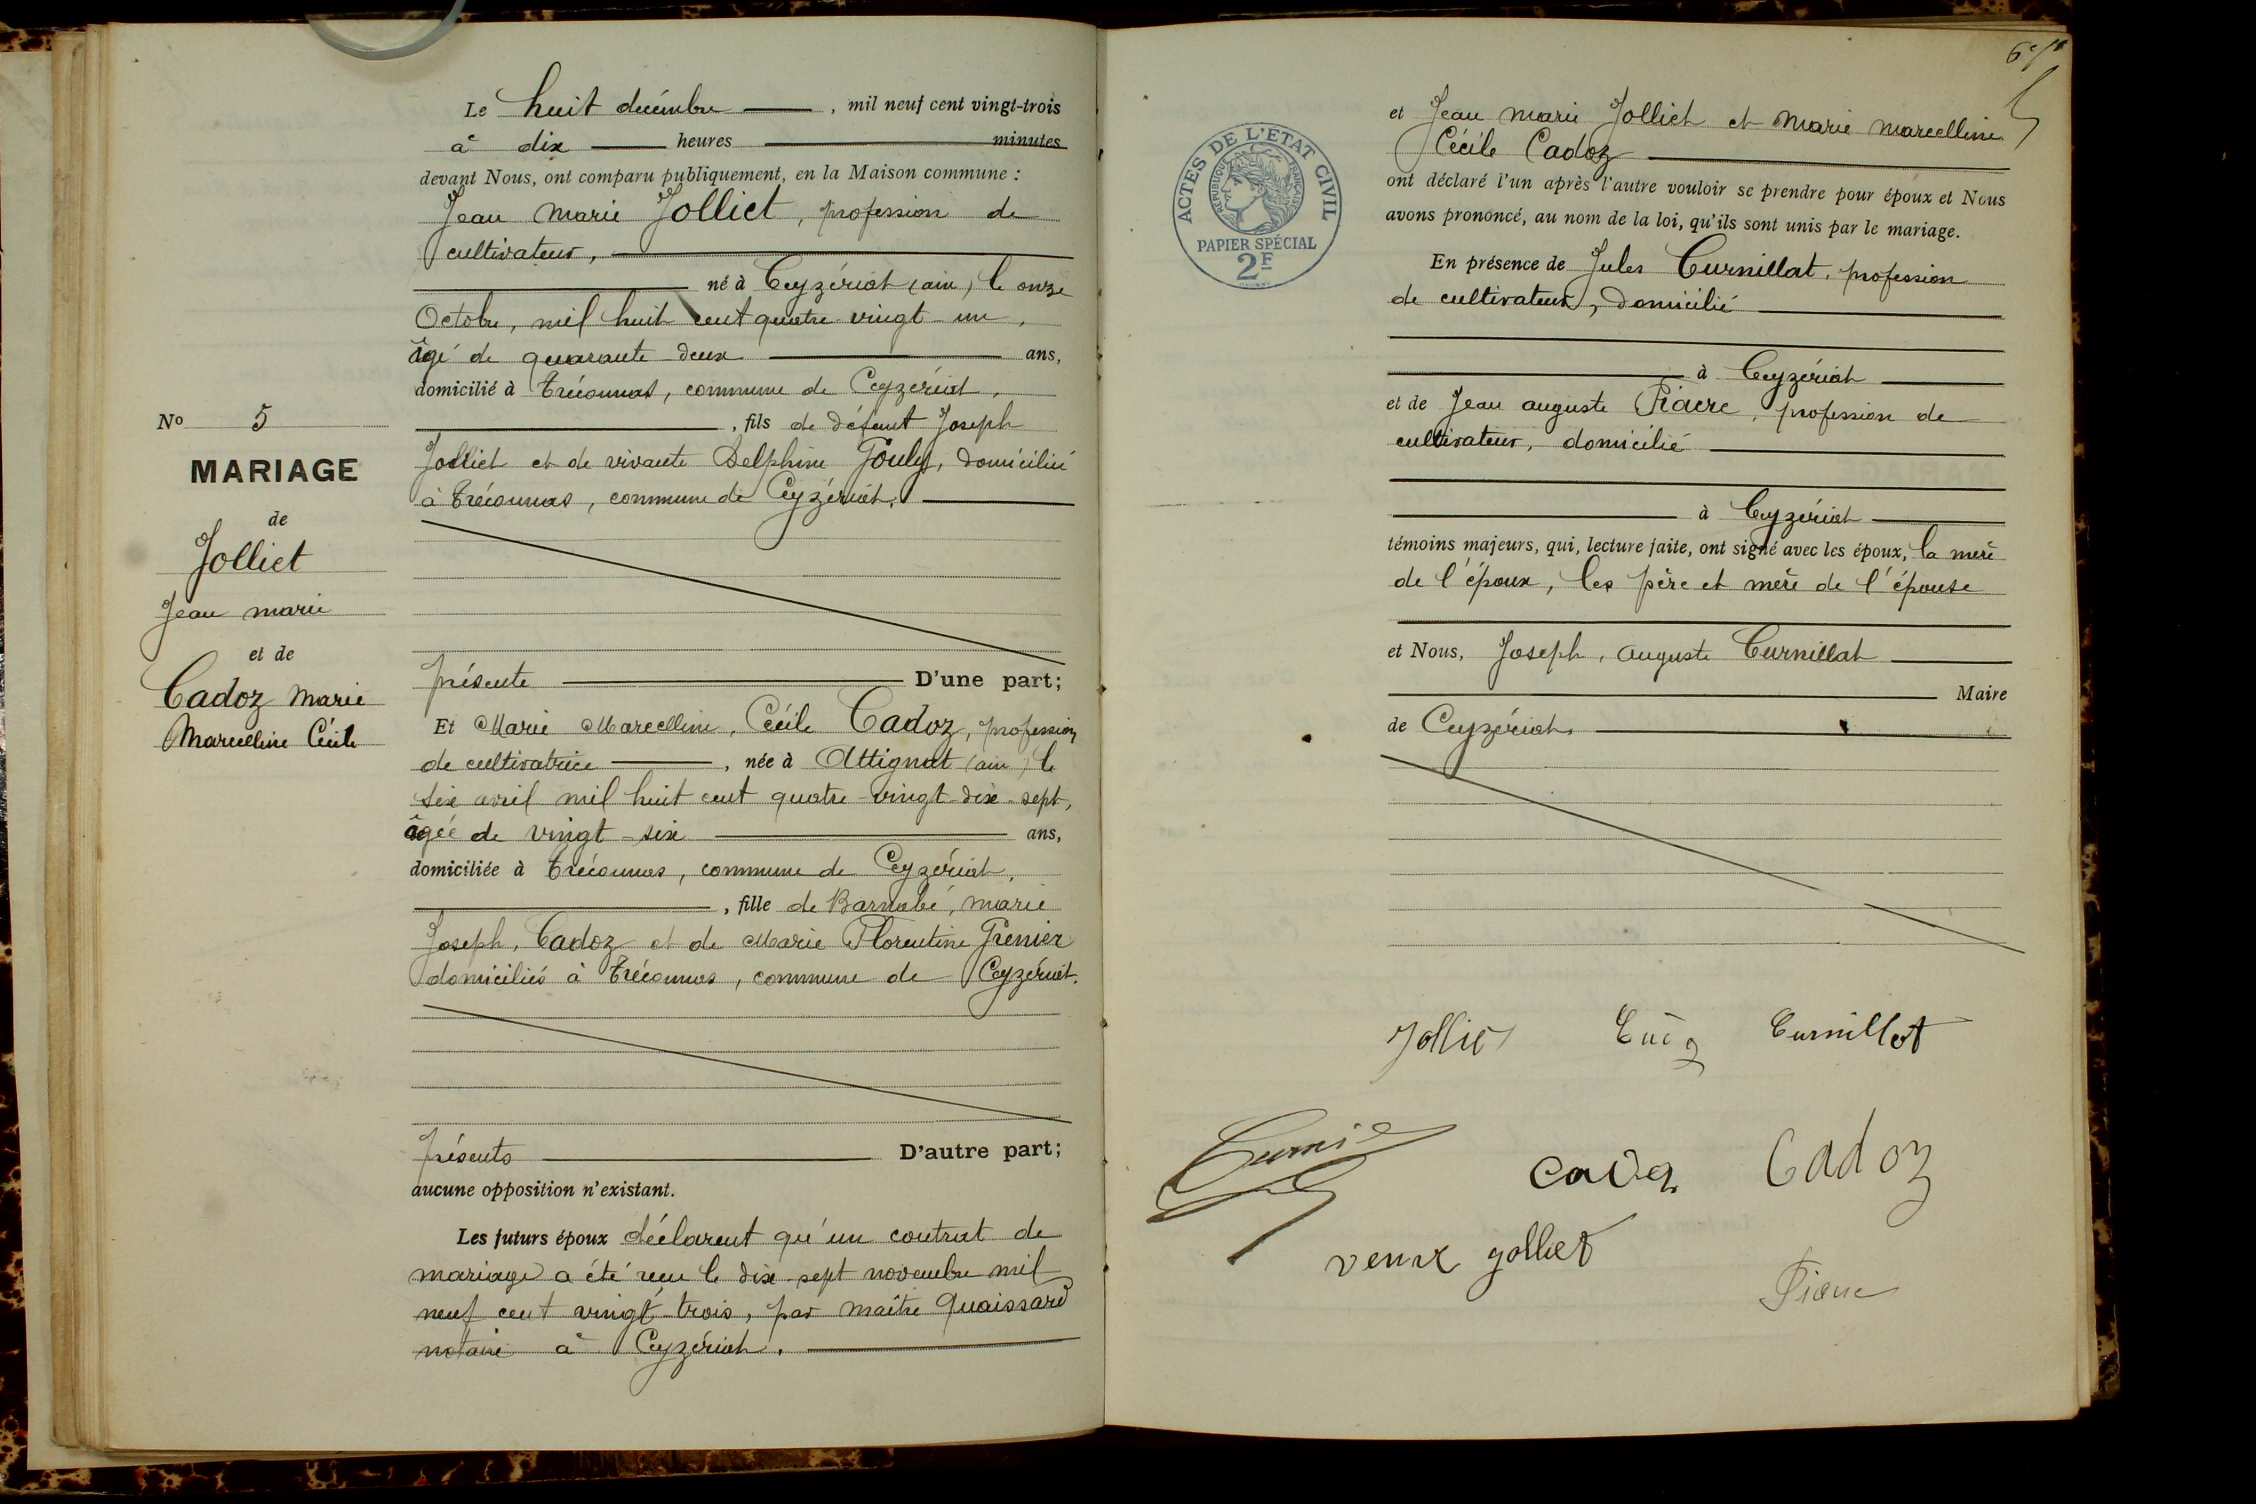 Le huit décembre , mil neuf cent vingt-trois
à dix heures minutes
devant Nous, ont comparu publiquement, en la Maison commune :
Jean Marie Jolliet, profession de
cultivateur,
né à Ceyzériat (ain) le onze
Octobre, mil huit cent quatre vingt-un,
âgé de quarante-deux ans,
domicilié à Tréconnas, commune de Ceyzériat,
, fils de défunt Joseph
Jolliet et de vivante Delphine Gouly, domiciliée
à Tréconnas, commune de Ceyzériat.
présente D'une part;
Et Marie Marcelline, Cécile Cadoz, profession
de cultivatrice , née à Attignat (ain) le
six avril mil huit cent quatre-vingt-dix-sept,
âgée de vingt-six ans,
domiciliée à Tréconnas, commune de Ceyzériat,
, fille de Barnabé, marie
Joseph, Cadoz et de Marie Florentine Grenier
domiciliés à Tréconnas, commune de Ceyzériat.
présents D'autre part;
aucune opposition n'existant.
Les futurs époux déclarent qu'un contrat de
mariage a été reçu le dix-sept novembre mil
neuf cent vingt-trois, par maître Quaissard
notaire à Ceyzériat.
No 5
MARIAGE
de
Jolliet
Jean marie
et de
Cadoz Marie
Marcelline Cécile
ACTES DE L'ETAT CIVIL
REPUBLIQUE FRANÇAISE
PAPIER SPÉCIAL
2F
et Jean marie Jolliet et Marie Marcelline
Cécile Cadoz
ont déclaré l'un après l'autre vouloir se prendre pour époux et Nous
avons prononcé, au nom de la loi, qu'ils sont unis par le mariage.
En présence de Jules Curnillat, profession
de cultivateur, domicilié
à Ceyzériat
et de Jean auguste Piacre, profession de
cultivateur, domicilié
à Ceyzériat
témoins majeurs, qui, lecture faite, ont signé avec les époux, la mère
de l'époux, les père et mère de l'épouse
et Nous, Joseph, Auguste Curnillat
Maire
de Ceyzériat
Jolliet Curnillat
Cadoz Cadoz
veuve jolliet